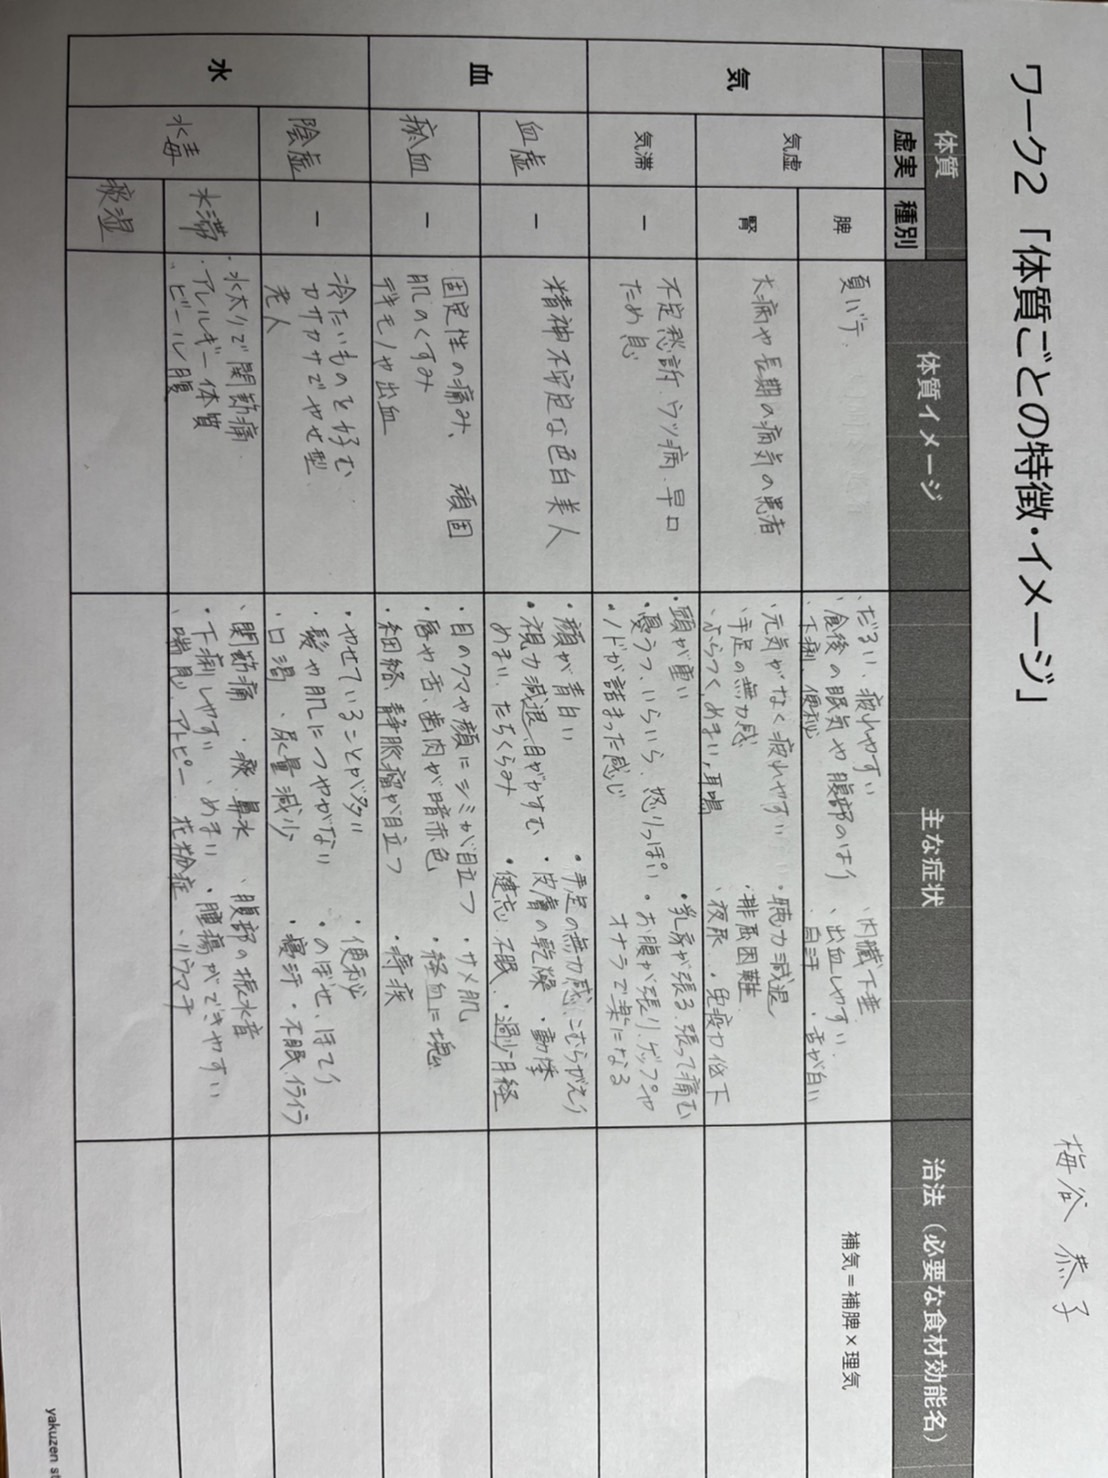 ワーク2「体質ごとの特徴・イメージ」
梅谷 恭子
体質
虚実 種別
体質イメージ
主な症状
治法（必要な食材効能名）
気
気虚
脾
夏バテ
・だるい、疲れやすい ・内臓下垂
・食後の眠気や腹部のはり ・出血しやすい
・下痢、便秘 ・自汗 ・舌が白い
補気＝補脾×理気
腎
大病や長期の病気の患者
・元気がなく疲れやすい ・聴力減退
・手足の無力感 ・排尿困難
・ふらつく、めまい、耳鳴 ・夜尿 ・免疫力低下
気滞
－
不定愁訴、ウツ病、早口
ため息
・頭が重い ・乳房が張る 張って痛む
・憂うつ、いらいら、怒りっぽい ・お腹が張り、ゲップや
・ノドが詰まった感じ オナラで楽になる
血
血虚
－
精神不安定な色白美人
・顔が青白い ・手足の無力感、こむらがえり
・視力減退、目がかすむ ・皮膚の乾燥 ・動悸
めまい、たちくらみ ・健忘、不眠 ・過少月経
瘀血
－
固定性の痛み、頑固
肌のくすみ
デキモノや出血
・目のクマや顔にシミが目立つ ・サメ肌
・唇や舌、歯肉が暗赤色 ・経血に塊
・細絡、静脈瘤が目立つ ・痔疾
水
陰虚
－
冷たいものを好む
カサカサでやせ型
老人
・やせていることが多い ・便秘
・髪や肌につやがない ・のぼせ、ほてり
・口渇 、尿量減少 ・寝汗・不眠 イライラ
水毒
水滞
・水太りで関節痛
・アレルギー体質
・ビール腹
・関節痛 ・痰、鼻水 、腹部の振水音
・下痢しやすい、めまい ・腫瘍ができやすい
・喘息、アトピー、花粉症 、リウマチ
痰湿
yakuzen